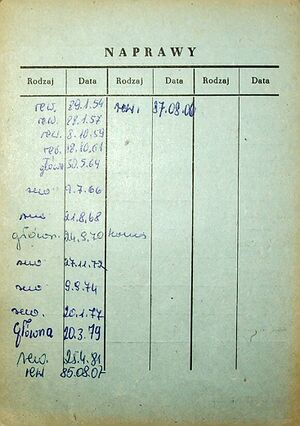 NAPRAWY
Rodzaj Data Rodzaj Data Rodzaj Data
rew. 29.1.54 rew. 87.08.06
rew. 28.1.57
rew. 8.10.59
rew. 18.10.61
główn. 30.5.64
rew 9.7.66
rew 21.8.68
główn. 24.9.70
rew 27.11.72
rew 9.9.74
rew. 20.1.77
Główna 20.3.79
rew. 25.4.81
rew 85.08.07